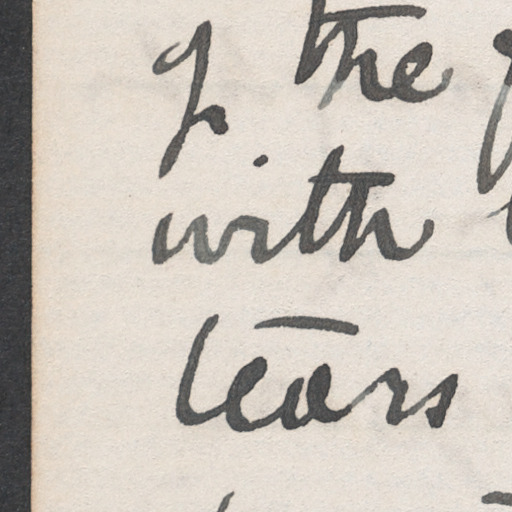 of the
with
tears